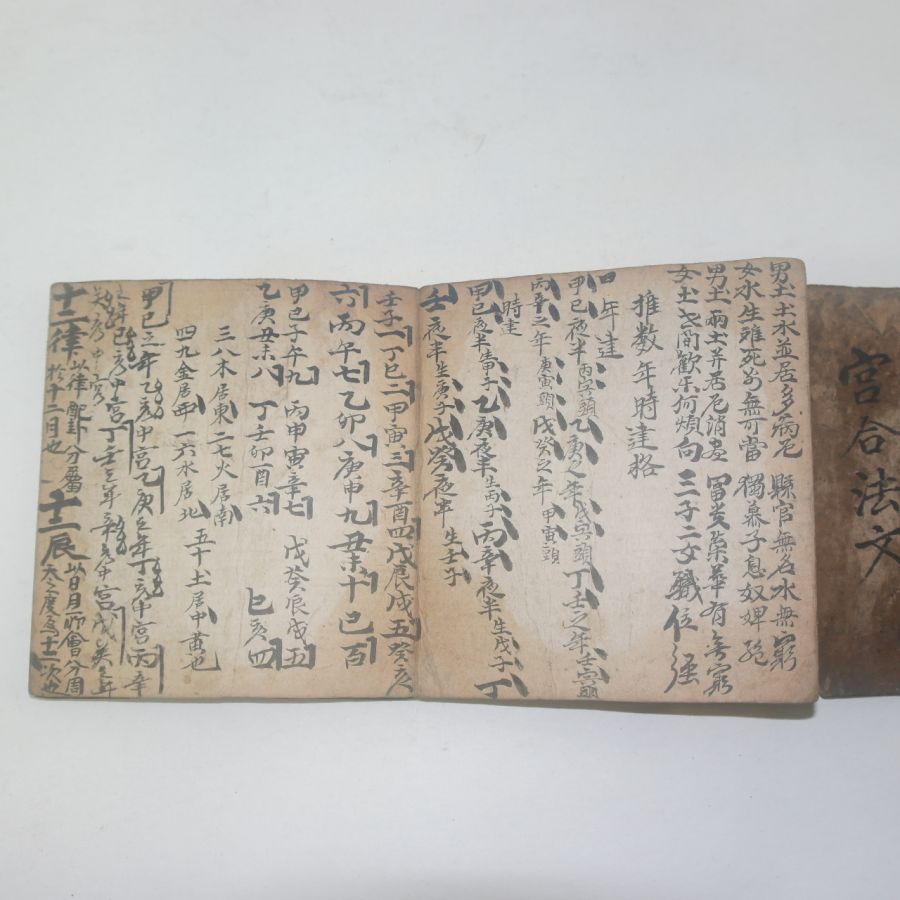 宮合法文
男土土水並居多病厄 縣官無名水無窮
女水生雖死前無可當 獨慕子息奴婢絶
男土兩土并居厄消盡 富貴榮華有無窮
女土老間歡樂何煩向 三子二女職位强
推数年時建格
年建
甲己夜半丙寅頭乙庚之年戊寅頭丁壬之年壬寅頭
丙辛之年庚寅頭戊癸之年甲寅頭
時建
甲己夜半生甲子乙庚夜半生丙子丙辛夜半生戊子丁
壬夜半生庚子戊癸夜半生壬子
壬子一丁巳二甲寅三辛酉四戊辰戌五癸亥
六丙午七乙卯八庚申九丑未十己百
甲己子午九 丙申寅辛七 戊癸辰戌五
乙庚丑未八 丁壬卯酉六 巳亥四
三八木居東二七火居南 五十土居中黄也
四九金居西一六水居北
甲己之年乙亥中宮乙庚之年丁亥中宮丙辛
之年己亥中宮丁壬之年辛亥中宮戊癸之年
癸亥中宮
十二律 此律配卦分層 於十二月也 十二辰 此日月所會分周